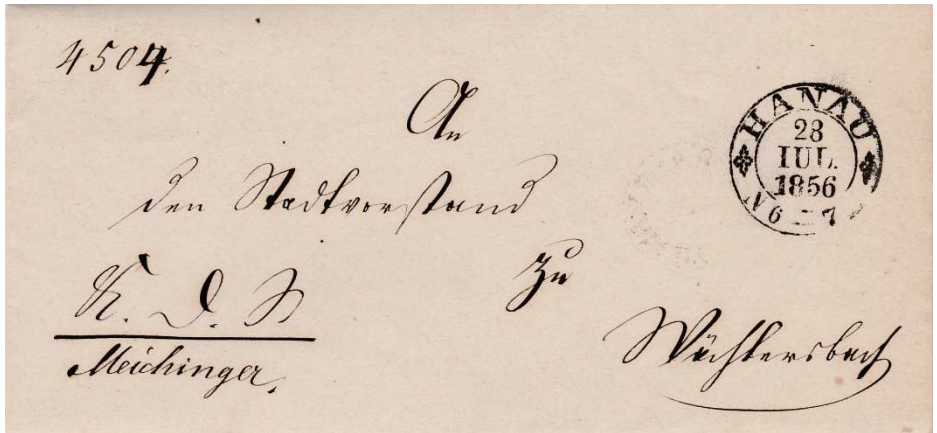 4504.
An
den Stadtvorstand
zu
Wächtersbach
K. D. S
Meichinger.
HANAU
28
IUL.
1856
N 6 - 7